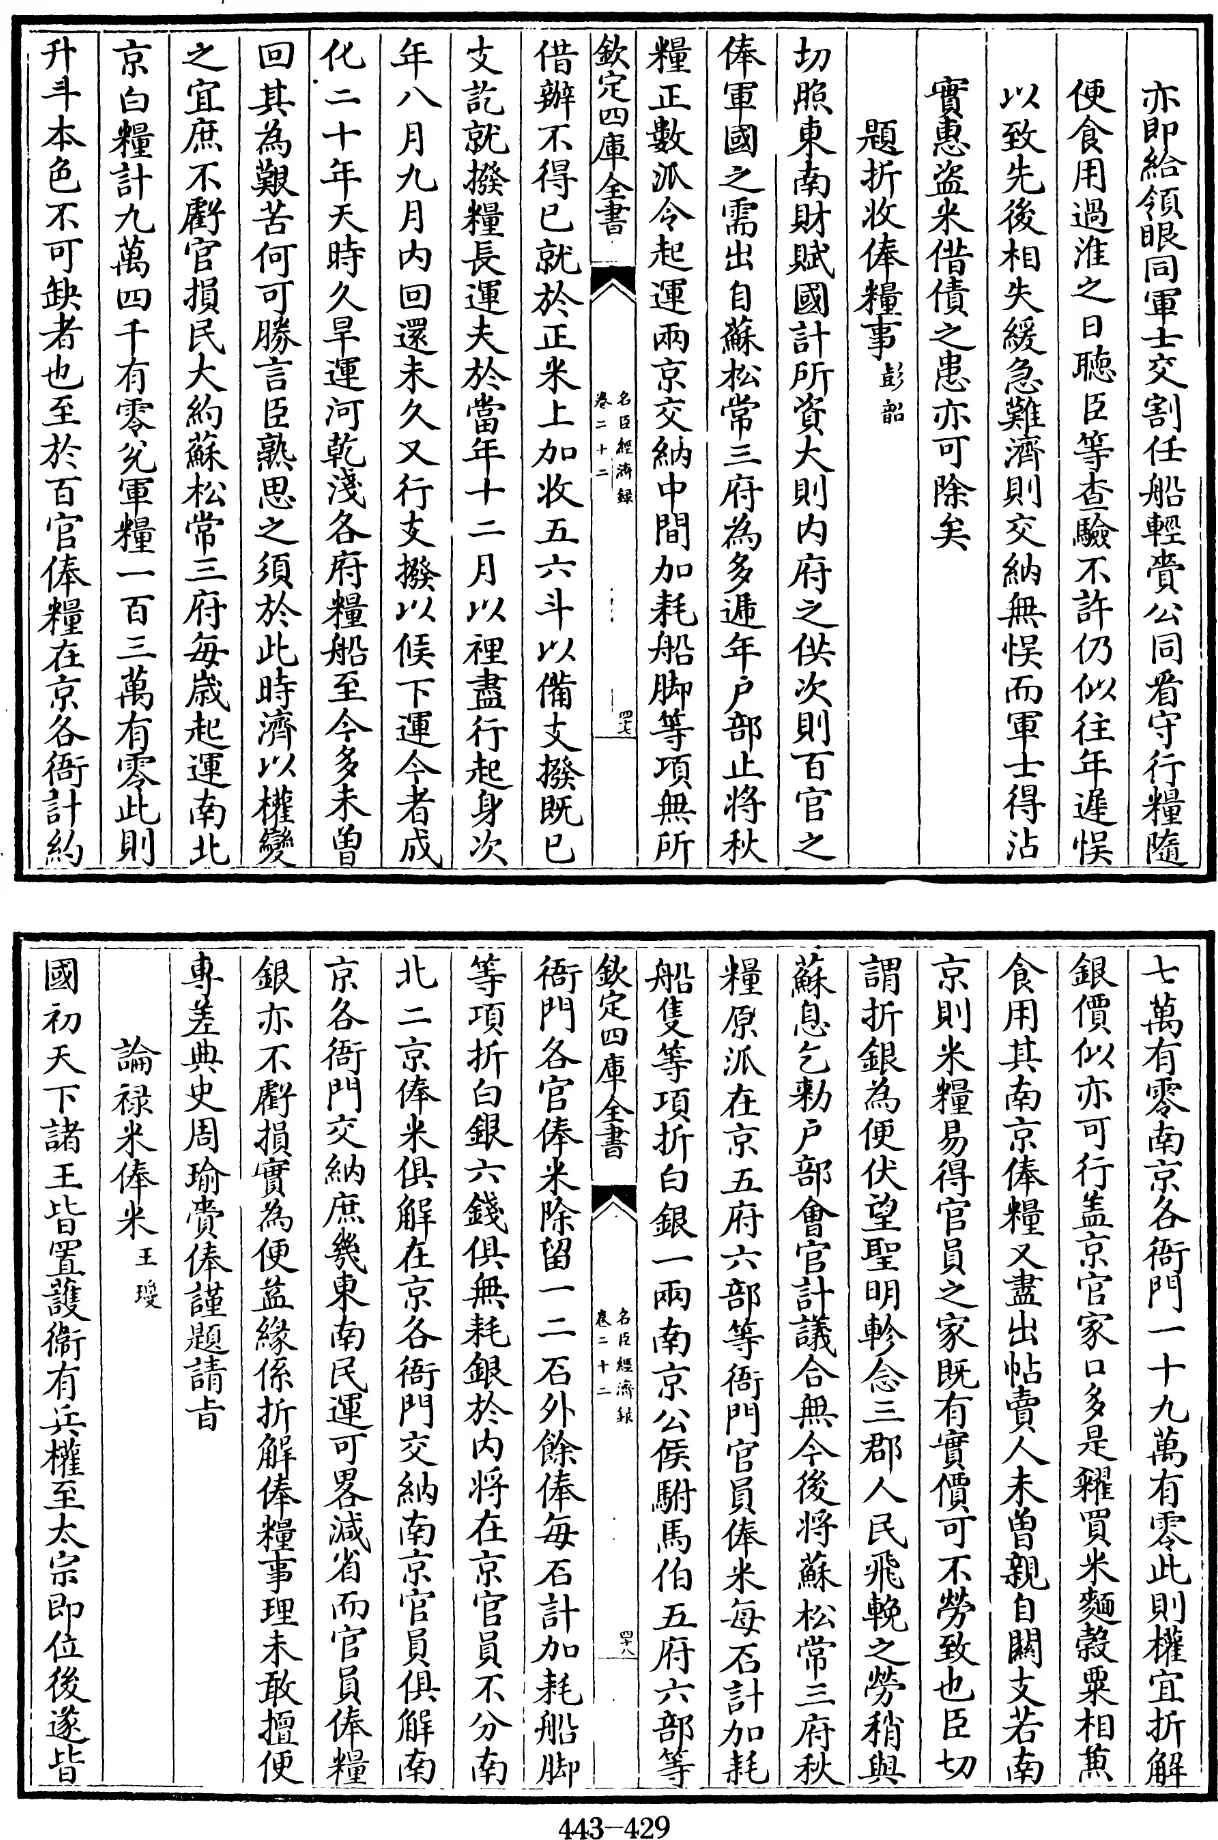 亦即給領眼同軍士交割任船輕賫公同看守行糧隨
便食用過淮之日聽臣等查驗不許仍似往年遲悞
以致先後相失緩急難濟則交納無悞而軍士得沾
實惠盜米借債之患亦可除矣
題折收俸糧事彭韶
切照東南財賦國計所資大則内府之供次則百官之
俸軍國之需出自蘇松常三府為多逓年户部止將秋
糧正數派令起運兩京交納中間加耗船脚等項無所
欽定四庫全書
名臣經濟録
卷二十二
四七
借辦不得已就於正米上加收五六斗以備支撥既已
支訖就撥糧長運夫於當年十二月以裡盡行起身次
年八月九月内回還未久又行支撥以候下運今者成
化二十年天時久旱運河乾淺各府糧船至今多未曽
回其為艱苦何可勝言臣熟思之須於此時濟以權變
之宜庶不虧官損民大約蘇松常三府每歲起運南北
京白糧計九萬四千有零兊軍糧一百三萬有零此則
升斗本色不可缺者也至於百官俸糧在京各衙計約
七萬有零南京各衙門一十九萬有零此則權宜折解
銀價似亦可行盖京官家口多是糴買米麵穀粟相兼
食用其南京俸糧又盡出帖賣人未曽親自闗支若南
京則米糧易得官員之家既有實價可不勞致也臣切
謂折銀為便伏望聖明軫念三郡人民飛輓之勞稍與
蘇息乞勑户部會官計議合無今後將蘇松常三府秋
糧原派在京五府六部等衙門官員俸米每石計加耗
船隻等項折白銀一兩南京公侯駙馬伯五府六部等
欽定四庫全書
名臣經濟録
卷二十二
四八
衙門各官俸米除留一二石外餘俸每石計加耗船脚
等項折白銀六錢俱無耗銀於内將在京官員不分南
北二京俸米俱解在京各衙門交納南京官員俱解南
京各衙門交納庶幾東南民運可畧減省而官員俸糧
銀亦不虧損實為便益緣係折解俸糧事理未敢擅便
專差典史周瑜賫俸謹題請㫖
論禄米俸米王瓊
國初天下諸王皆置護衞有兵權至太宗即位後遂皆
443-429